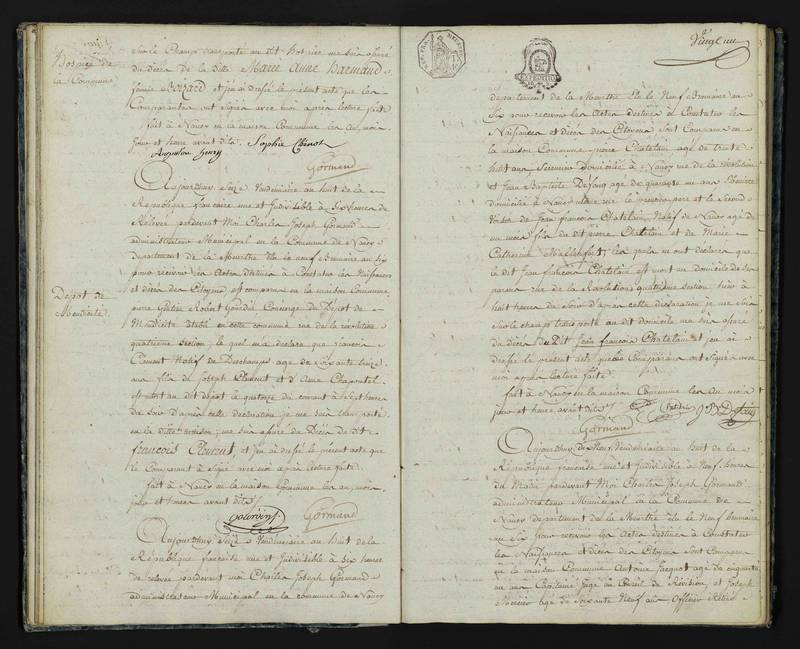 Hospice de
la Commune
Sur le Champ transporté au dit Hospice me suis assuré
du décès de la ditte Marie Anne Barmand
femme Bogard et j'ai dressé le présent acte que les
Comparantes ont signés avec moi après lecture faite
fait à Nancy en la maison Commune les an, mois
jour et heure avant dits Sophie Chenot
Augustin henry
Gormand
Aujourdhuy Seize Vendemiaire au huit de la
République francaise une et Indivisible à Six heures de
Relevée pardevant Moi Charles Joseph Gormand
administrateur Municipal en la Commune de Nancy
Departement de la Meurthe élu le neuf Brumaire an Six
pour recevoir les Actes destinés à Constater les Naissances
et décès des Citoyens est comparu en la maison Commune
Depot de
Mendicité
pierre Robert Gourdin Concierge du Depot de
Mendicité établi en cette commune rue de la révolution
quatrieme Section, le quel m'a déclaré que françois
Clement Natif de Deschamps agé de soixante seize
ans fils de Joseph Clement et d'Anne Chapentel
est mort au dit dépôt le quatorze du courant à sept heures
du Soir d'après cette declaration je me suis transporté
en la ditte maison, me suis assuré du Décès du dit
françois Clement, et j'en ai dressé le présent acte que
le Comparant à Signé avec moi après lecture faite.
fait à Nancy en la maison Commune les an, mois
jour et heure avant dits
Gormand
Aujourdhuy, Seize Vendemiaire au huit de la
République francaise une et Indivisible à Six heures
de relevée pardevant moi Charles Joseph Gormand
administrateur Municipal en la commune de Nancy
Vingt un
département de la Meurthe élu le Neuf Brumaire an
Six pour recevoir les Actes destinés à Constater les
Naissances et décès des Citoyens, sont Comparus en
la maison Commune pierre Chatelain agé de trente
huit ans Domicilié à Nancy rue de la révolution
et Jean Baptiste agé de quarante un ans
domicilié à Nancy même rue, le premier pere et le Second
Voisin de Jean françois Chatelain, Natif de Nancy agé de
un mois fils du dit pierre Chatelain et de Marie
Catherine les quels m'ont déclarés que
le dit Jean françois Chatelain est mort au domicile de ses
parens rue de la Révolution quatrieme section hier à
huit heures du Soir d'après cette déclaration je me suis
sur le champ transporté au dit domicile me suis assuré
du décès du Dit Jean françois Chatelain et j'en ai
dressé le présent acte que les Comparans ont Signés avec
moi après lecture faite
fait à Nancy en la maison Commune les an mois
jour et heure avant dits
Gormand
Aujourdhuy, Dix Sept Vendemiaire au huit de la
République francaise une et Indivisible à Neuf heures
du Matin pardevant Moi Charles Joseph Gormand
administrateur Municipal en la Commune de
Nancy département de la Meurthe élu le Neuf Brumaire
an Six pour recevoir les Actes destinés à Constater
les Naissances et décès des Citoyens sont Comparus
en la maison Commune Antoine Jacquot agé de cinquante
un ans Capitaine Juge au Conseil de Révision, et Joseph
Mercier agé de Soixante Neuf ans Officier Retiré